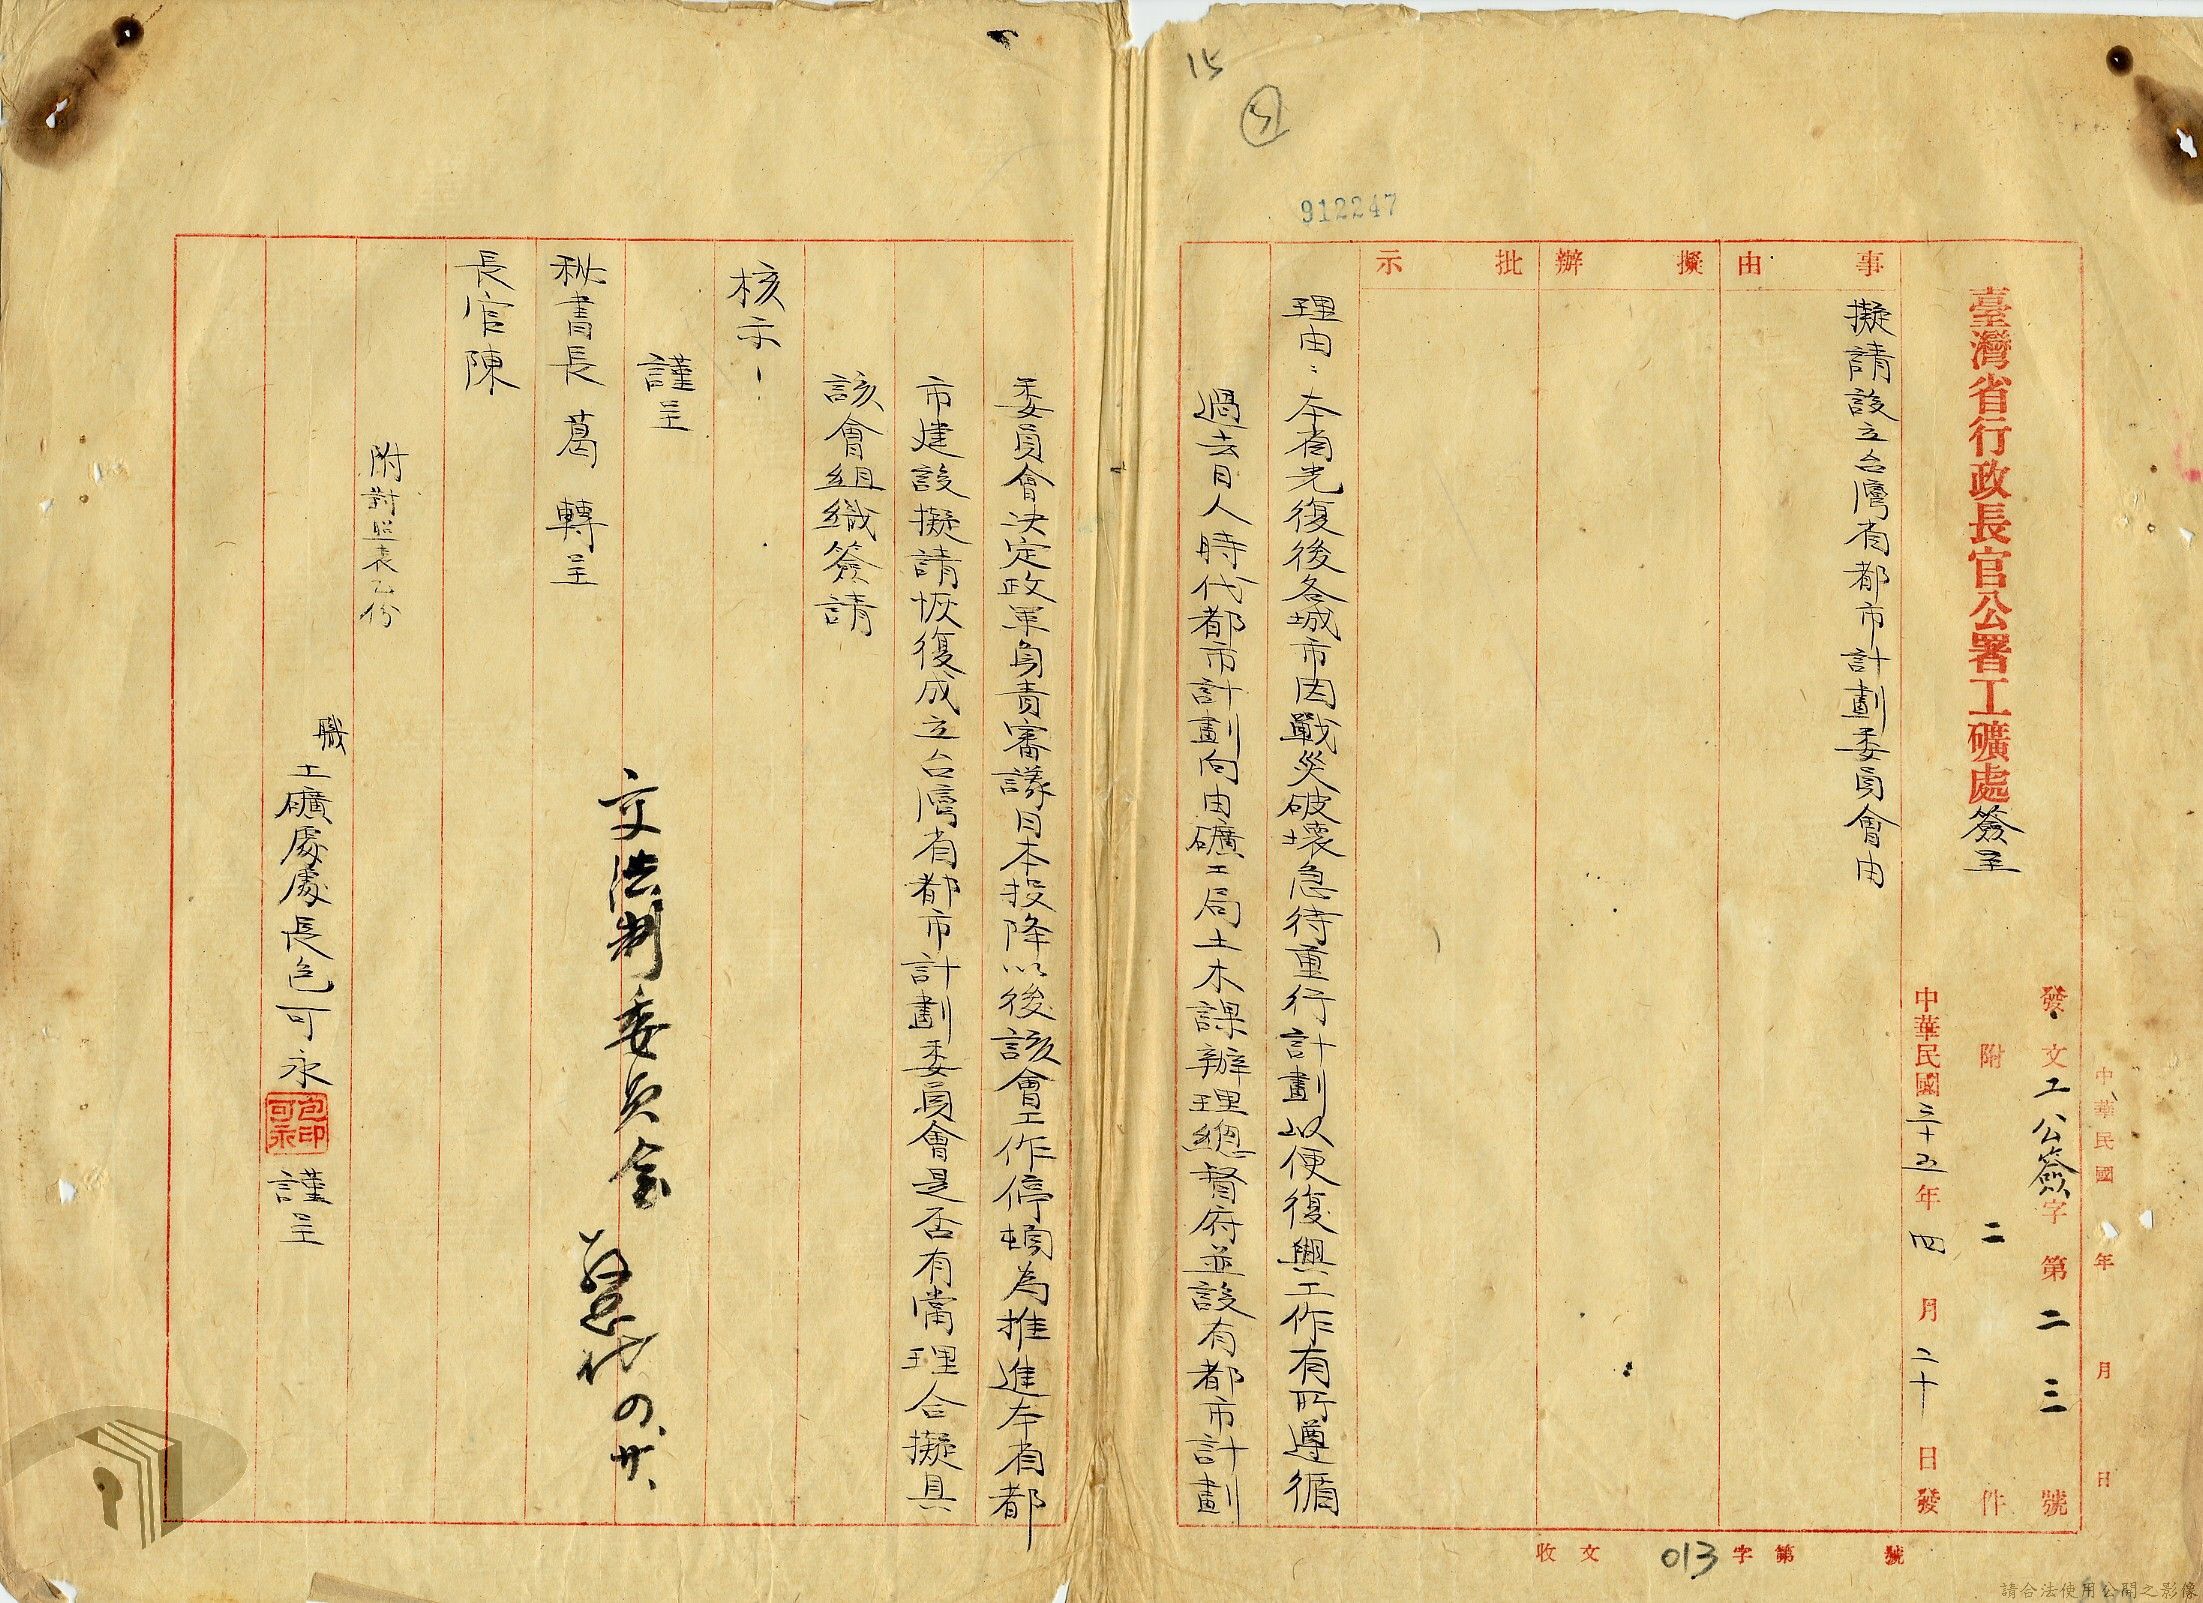 15
912247
中華民國 年 月 日
發文工公簽字第二三號
附 二 件
臺灣省行政長官公署工礦處簽呈
中華民國三十五年四月二十日發
事由
擬請設立台灣省都市計劃委員會由
擬辦
批示
理由：本省光復後各城市因戰災破壞急待重行計劃以便復興工作有所遵循
過去日人時代都市計劃向由礦工局土木課辦理總督府並設有都市計劃
委員會決定政策負責審議日本投降以後該會工作停頓為推進本省都
市建設擬請恢復成立台灣省都市計劃委員會是否有當理合擬具
該會組織簽請
核示！
謹呈
秘書長 葛 轉呈
長官陳
附對照表乙份
職
工礦處處長包可永
包可永印
謹呈
交法制委員會
代 四、廿、
收文 013 字第 號
請合法使用公開之影像